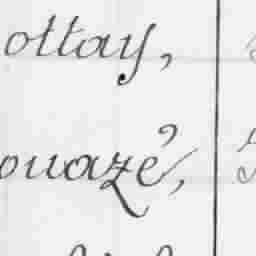 ottay,
ouazé,